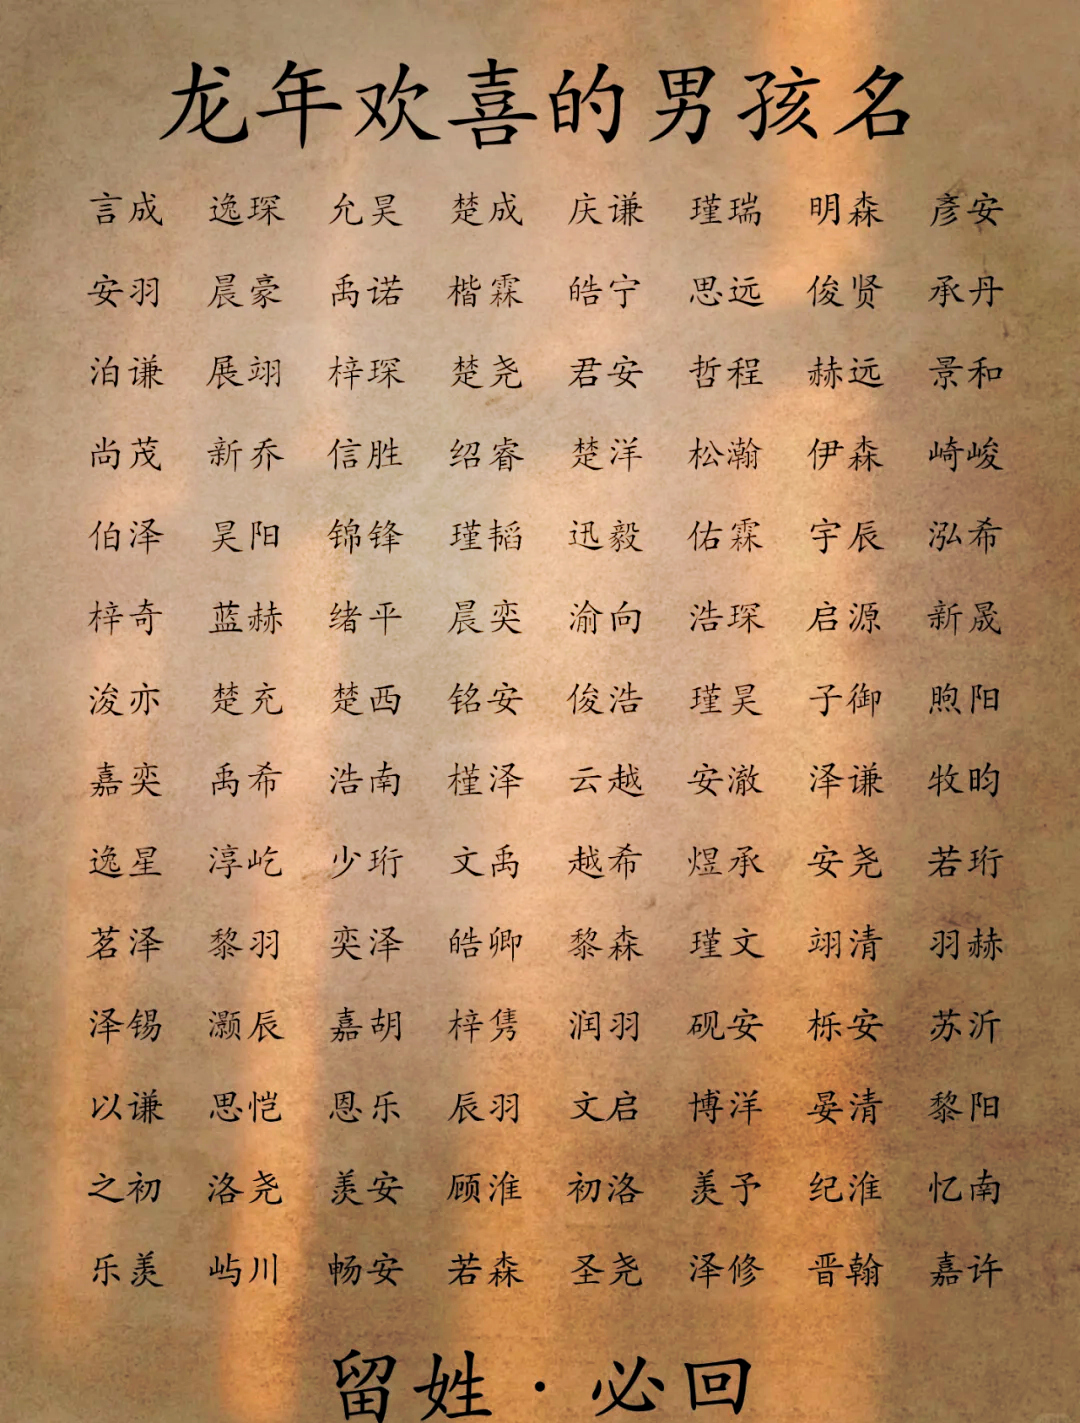 龙年欢喜的男孩名
言成 逸琛 允昊 楚成 庆谦 瑾瑞 明森 彦安
安羽 晨豪 禹诺 楷霖 皓宁 思远 俊贤 承丹
泊谦 展翊 梓琛 楚尧 君安 哲程 赫远 景和
尚茂 新乔 信胜 绍睿 楚洋 松瀚 伊森 崎峻
伯泽 昊阳 锦锋 瑾韬 迅毅 佑霖 宇辰 泓希
梓奇 蓝赫 绪平 晨奕 渝向 浩琛 启源 新晟
浚亦 楚充 楚西 铭安 俊浩 瑾昊 子御 煦阳
嘉奕 禹希 浩南 槿泽 云越 安澈 泽谦 牧昀
逸星 淳屹 少珩 文禹 越希 煜承 安尧 若珩
茗泽 黎羽 奕泽 皓卿 黎森 瑾文 翊清 羽赫
泽锡 灏辰 嘉胡 梓隽 润羽 砚安 栎安 苏沂
以谦 思恺 恩乐 辰羽 文启 博洋 晏清 黎阳
之初 洛尧 羡安 顾淮 初洛 羡予 纪淮 忆南
乐羡 屿川 畅安 若森 圣尧 泽修 晋翰 嘉许
留姓·必回